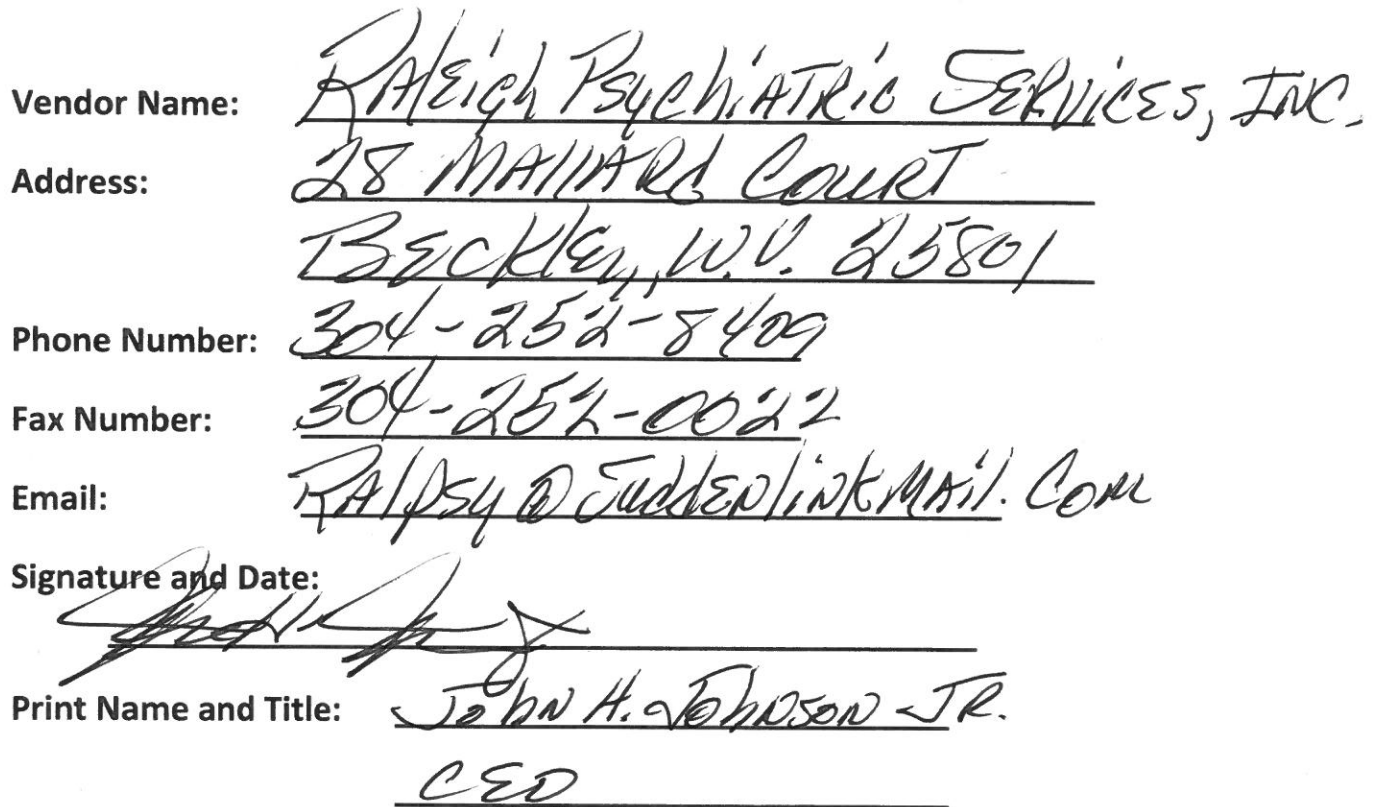 Vendor Name: RAlEigh PsychiATRic SERVicES, INC.
Address: 28 MAllARd CouRT
BECKlEy, W.V. 25801
Phone Number: 304-252-8409
Fax Number: 304-252-0022
Email: RAlpsy@SuddENlinkMAil.Com
Signature and Date:
Print Name and Title: John H. Johnson JR.
CEO